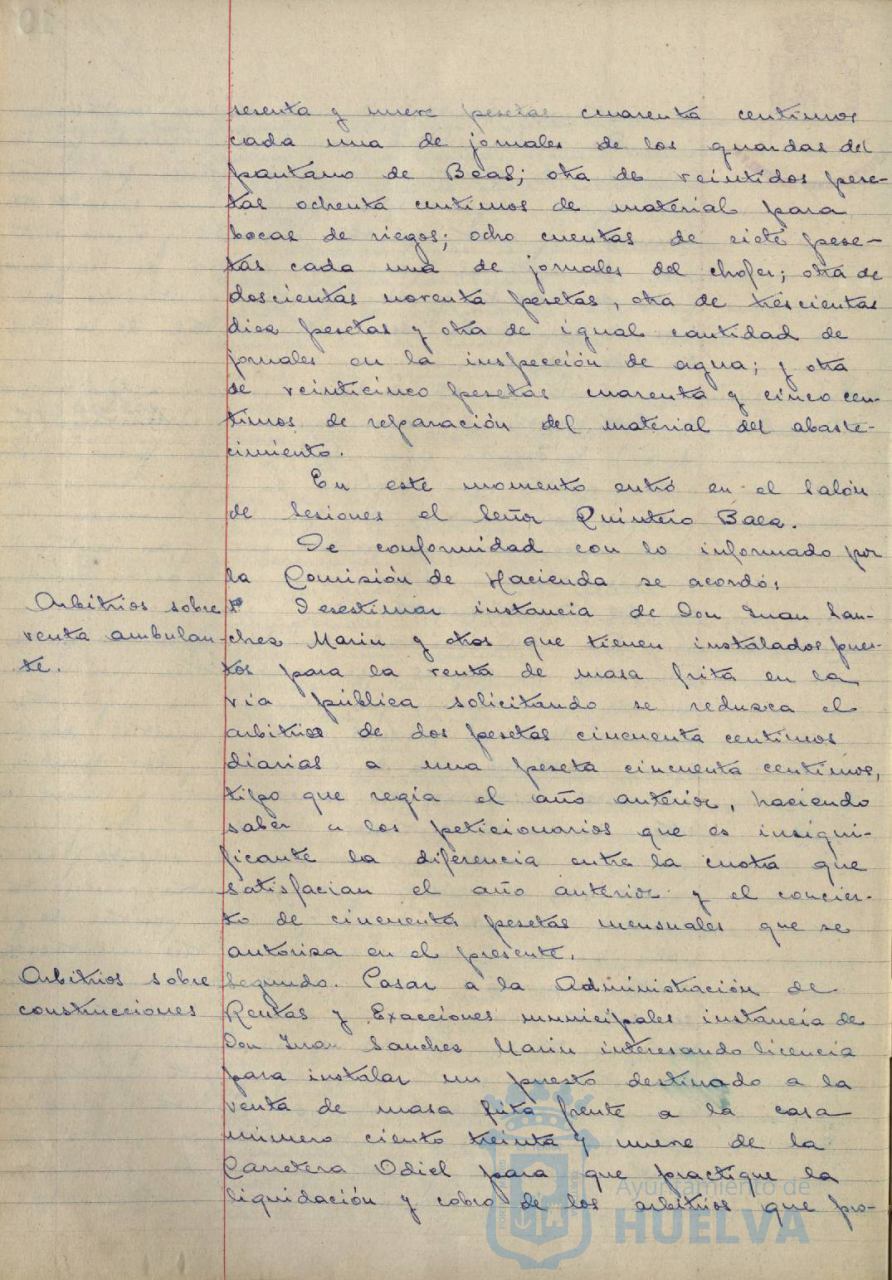 sesenta y nueve pesetas cuarenta centimos
cada una de jornales de los guardas del
pantano de Beas; otra de veintidos pese-
tas ochenta centimos de material para
bocas de riegos; ocho cuentas de siete pese-
tas cada una de jornales del chofer; otra de
doscientas noventa pesetas, otra de trescientas
diez pesetas y otra de igual cantidad de
jornales en la inspección de agua; y otra
de veinticinco pesetas cuarenta y cinco cen-
timos de reparación del material del abaste-
cimiento.
En este momento entró en el Salón
de Sesiones el Señor Quintero Baez.
De conformidad con lo informado por
la Comisión de Hacienda se acordó:
Arbitrios sobre
venta ambulan-
te.
1º Desestimar instancia de Don Juan San-
chez Marin y otros que tienen instalados pues-
tos para la venta de masa frita en la
via pública solicitando se reduzca el
arbitrios de dos pesetas cincuenta centimos
diarias a una peseta cincuenta centimos,
tipo que regia el año anterior, haciendo
saber a los peticionarios que es insigni-
ficante la diferencia entre la cuota que
satisfacian el año anterior y el concier-
to de cincuenta pesetas mensuales que se
autoriza en el presente.
Arbitrios sobre
construcciones
Segundo. Pasar a la Administración de
Rentas y Exacciones municipales instancia de
Don Juan Sanchez Marin interesando licencia
para instalar un puesto destinado a la
venta de masa frita frente a la casa
número ciento treinta y nueve de la
Carretera Odiel para que practique la
liquidación y cobro de los arbitrios que pro-
Ayuntamiento de
HUELVA